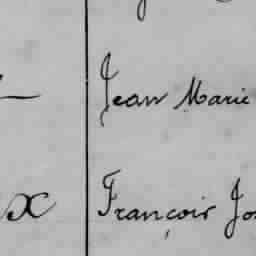 Jean Marie
x François Jos